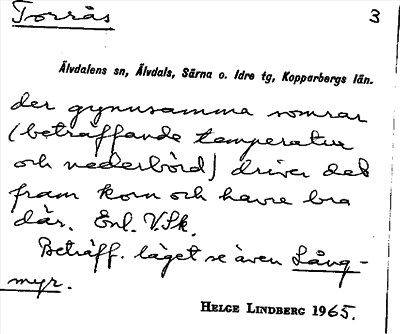 Torrås
3
Älvdalens sn, Älvdals, Särna o. Idre tg, Kopparbergs län.
der gynnsamma somrar
(beträffande temperatur
och nederbörd) driver det
fram korn och havre bra
där. Enl. V.Sk.
Beträff. läget se även Lång-
myr.
HELGE LINDBERG 1965.